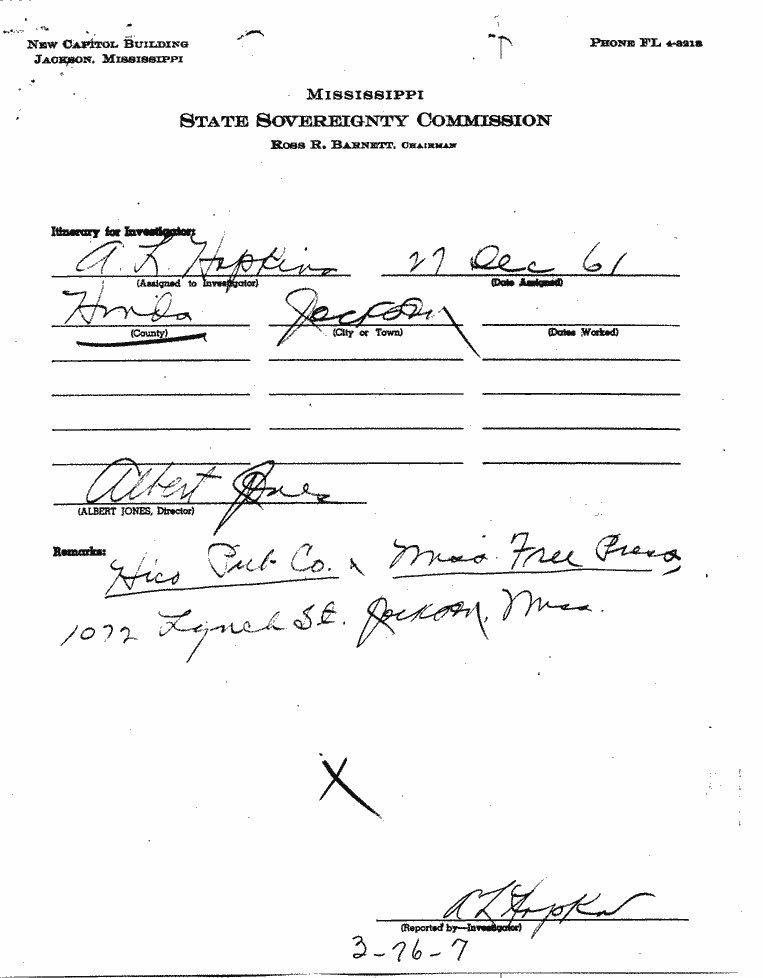 NEW CAPITOL BUILDING
JACKSON, MISSISSIPPI
PHONE FL 4-3218
MISSISSIPPI
STATE SOVEREIGNTY COMMISSION
ROSS R. BARNETT, CHAIRMAN
Itinerary for Investigator:
A. L. Hopkins 27 Dec 61
(Assigned to Investigator) (Date Assigned)
Hinds Jackson
(County) (City or Town) (Dates Worked)
Albert Jones
(ALBERT JONES, Director)
Remarks:
Hico Pub Co. & Miss. Free Press,
1072 Lynch St. Jackson, Miss.
X
A L Hopkins
(Reported by—Investigator)
3-76-7